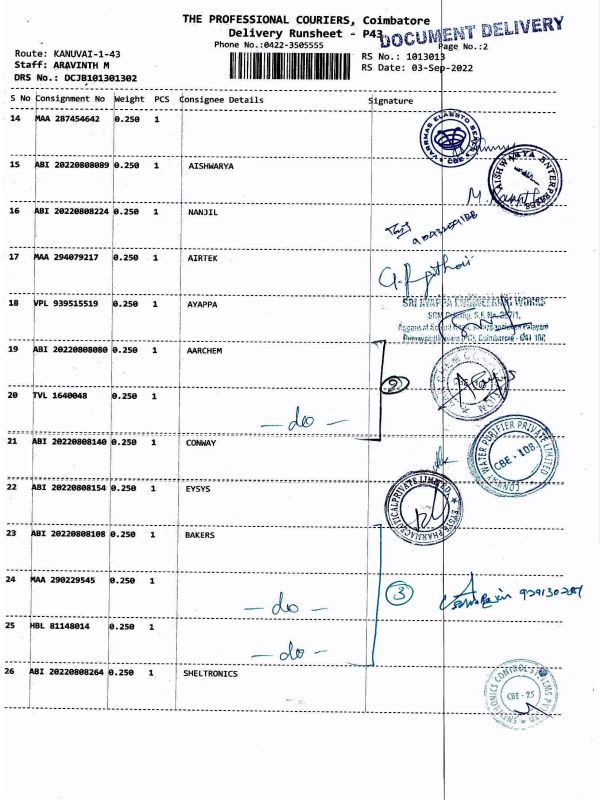 THE PROFESSIONAL COURIERS, Coimbatore
Delivery Runsheet - P43
DOCUMENT DELIVERY
Phone No.:0422-3505555
Page No.:2
Route: KANUVAI-1-43
RS No.: 1013013
Staff: ARAVINTH M
RS Date: 03-Sep-2022
DRS No.: DCJB101301302
S No Consignment No Weight PCS Consignee Details Signature
14 MAA 287454642 0.250 1
CBE
15 ABI 20220808089 0.250 1 AISHWARYA
AISHWARYA ENTERPRISES
16 ABI 20220808224 0.250 1 NANJIL
17 MAA 294079217 0.250 1 AIRTEK
18 VPL 939515519 0.250 1 AYAPPA
SRI AYAPPA ENGINEERING WORKS
19 ABI 20220808080 0.250 1 AARCHEM
2
20 TVL 1640048 0.250 1
- do -
21 ABI 20220808140 0.250 1 CONWAY
CONWAY WATER PURIFIER PRIVATE LIMITED
CBE - 108
22 ABI 20220808154 0.250 1 EYSYS
EYSYS PHARMACEUTICAL PRIVATE LIMITED
23 ABI 20220808108 0.250 1 BAKERS
24 MAA 290229545 0.250 1
- do -
3
25 HBL 81148014 0.250 1
- do -
26 ABI 20220808264 0.250 1 SHELTRONICS
CBE - 25